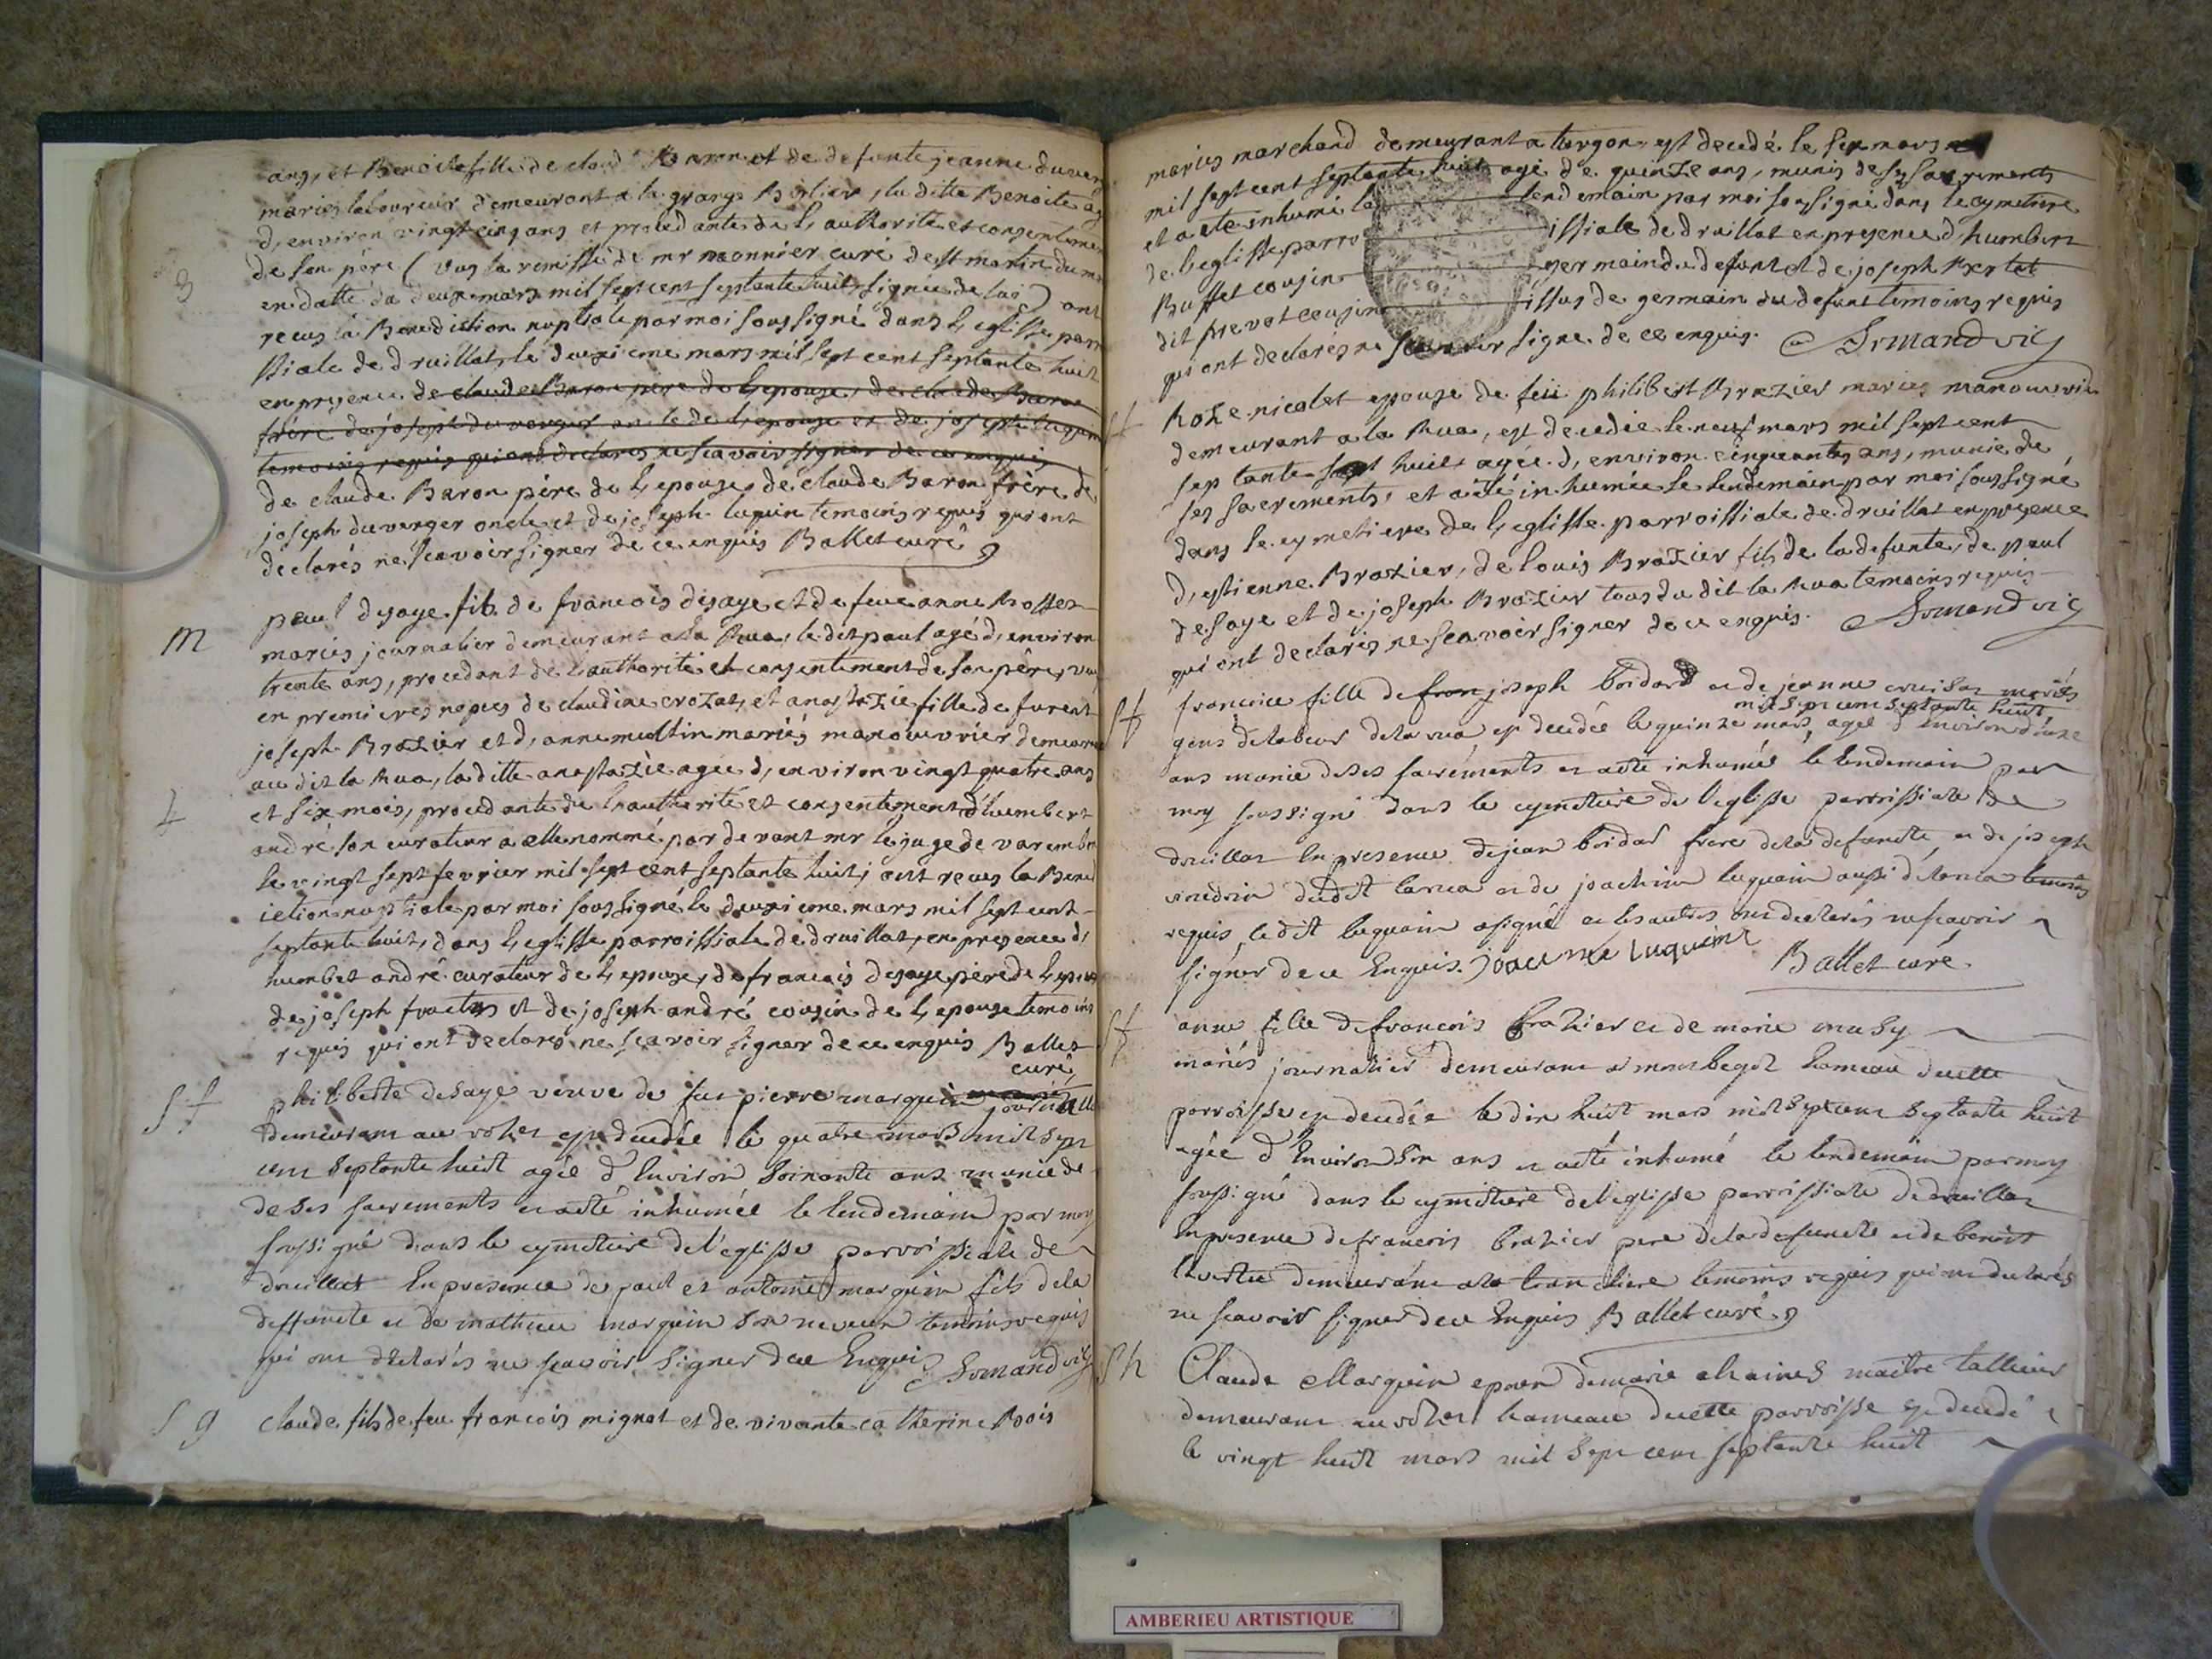 ans, et Benoite fille de claud Baron et de defunte jeanne duver
maries laboureur demeurant a la grange Berlier, la ditte Benoite ag
d, environ vingt cinq ans et procedante de L authorité et consenteme
de son père (vus la remisse de mr monnier curé de st martin du m
3
en datte du deux mars mil sept cent septante huit signée de lui) ont
recus la Benediction nuptiale par moi soussigné dans L eglisse parr
ssiale de druillat, le deuxieme mars mil sept cent septante huit
en presence de claude Baron père de L epouse, de claude Baron
frère de joseph du verger oncle de L epouse et de joseph luquin
temoins requis qui ont declares ne scavoir signer de ce enquis
de claude Baron père de L epouse, de claude Baron frère, de
joseph du verger oncle et de joseph luquin temoins requis qui ont
declarés ne scavoir signer de ce enquis Ballet curé
paul desaye fils de francois desaye et de feue anne
M
maries journalier demeurant a la Rua, le dit paul agé d, environ
trente ans, procedant de L authorité et consentement de son père, vu
en premieres noces de claudine crozat, et anastazie fille de furent
joseph Brazier et d, anne multin mariés manouvrier demeura
au dit la Rua, la ditte anastazie agee d, environ vingt quatre ans
et six mois, procedante de L authorité et consentement d'humbert
andré son curateur a elle nommé par devant mr le juge de varembo
le vingt sept fevrier mil sept cent septante huit, ont recus la Bened
iction nuptiale par moi soussigné le deuxieme mars mil sept cent
septante huit, dans L eglisse parroissiale de druillat, en presence d,
humbert andré curateur de L epouse, de francois desaye père de L epoux
de joseph et de joseph andré cousin de L epouse temoins
requis qui ont declarés ne scavoir signer de ce enquis Ballet
curé
philiberte desaye veuve de feu pierre marquin journalier
demeurant au est decedée le quatre mars mil sept
cent septante huit agée d'Environ soixante ans munie de
de ses sacrements et a eté inhumée le lendemain par moy
soussigné dans le cymetiere de l'eglisse parroissiale de
druillat En presence de paul et antoine marquin fils de la
deffuncte et de mathieu marquin son neveux temoins requis
qui ont declarés ne scavoir signer de ce Enquis Armand vic
S g
claude fils de feu francois mignot et de vivante catherine Bois
maries marchand demeurant a turgon est decedé le six mars
mil sept cent septante huit agé de quinze ans, munis de ses sacrements
et a eté inhumé le lendemain par moi soussigné dans le cymetiere
de l eglisse parroissiale de druillat en presence d, humbert
Buffet cousin germain du defunt et de joseph
dit prevot cousin issus de germain du defunt temoins requis
qui ont declarés ne scavoir signe de ce enquis. Armand vic
Roze nicolet epouse de feu philibert Brazier maries manouvrier
demeurant a la Rua, est decedée le neuf mars mil sept cent
septante huit agée d, environ cinquante ans, munie de
ses sacrements, et a eté inhumée le lendemain par moi soussigné
dans le cymetiere de L eglisse parroissiale de druillat en presence
d, estienne Brazier, de louis Brazier fils de la defunte, de paul
desaye et de joseph Brazier tous du dit la Rua temoins requis
qui ont declarés ne scavoir signer de ce enquis. Armand vic
francoise fille de fran joseph boidard et de jeanne mariés
mil sept cent septante huit
gens de labeur de la rua est decedée le quinze mars, agée d'Environ douze
ans munie de ses sacréments et a eté inhumée le lendemain par
moy soussigné dans le cymetiere de l'eglisse parroissiale de
druillat En presence de jean boidard frere de la defuncte, et de joseph
dudit larua et de joachim luquain aussi de larua temoins
requis, ledit luquain a signé et les autres ont declarés ne scavoir
signer de ce Enquis. joacime luquin Ballet curé
anne fille de francois brazier et de marie musy
mariés journalier demeurant a hameau de cette
parroisse est decedée le dix huit mars mil sept cent septante huit
agée d'Environ ans et a eté inhumé le lendemain par moy
soussigné dans le cymetiere de l'eglisse parroissiale de druillat
En presence de francois brazier pere de la defuncte et de benoit
demeurant a la tranchiere temoins requis qui ont declarés
ne scavoir signer de ce Enquis Ballet curé
Claude Marquin epoux de marie maitre tallieur
demeurant au hameau de cette parroisse est decedé
le vingt huit mars mil sept cent septante huit
AMBERIEU ARTISTIQUE